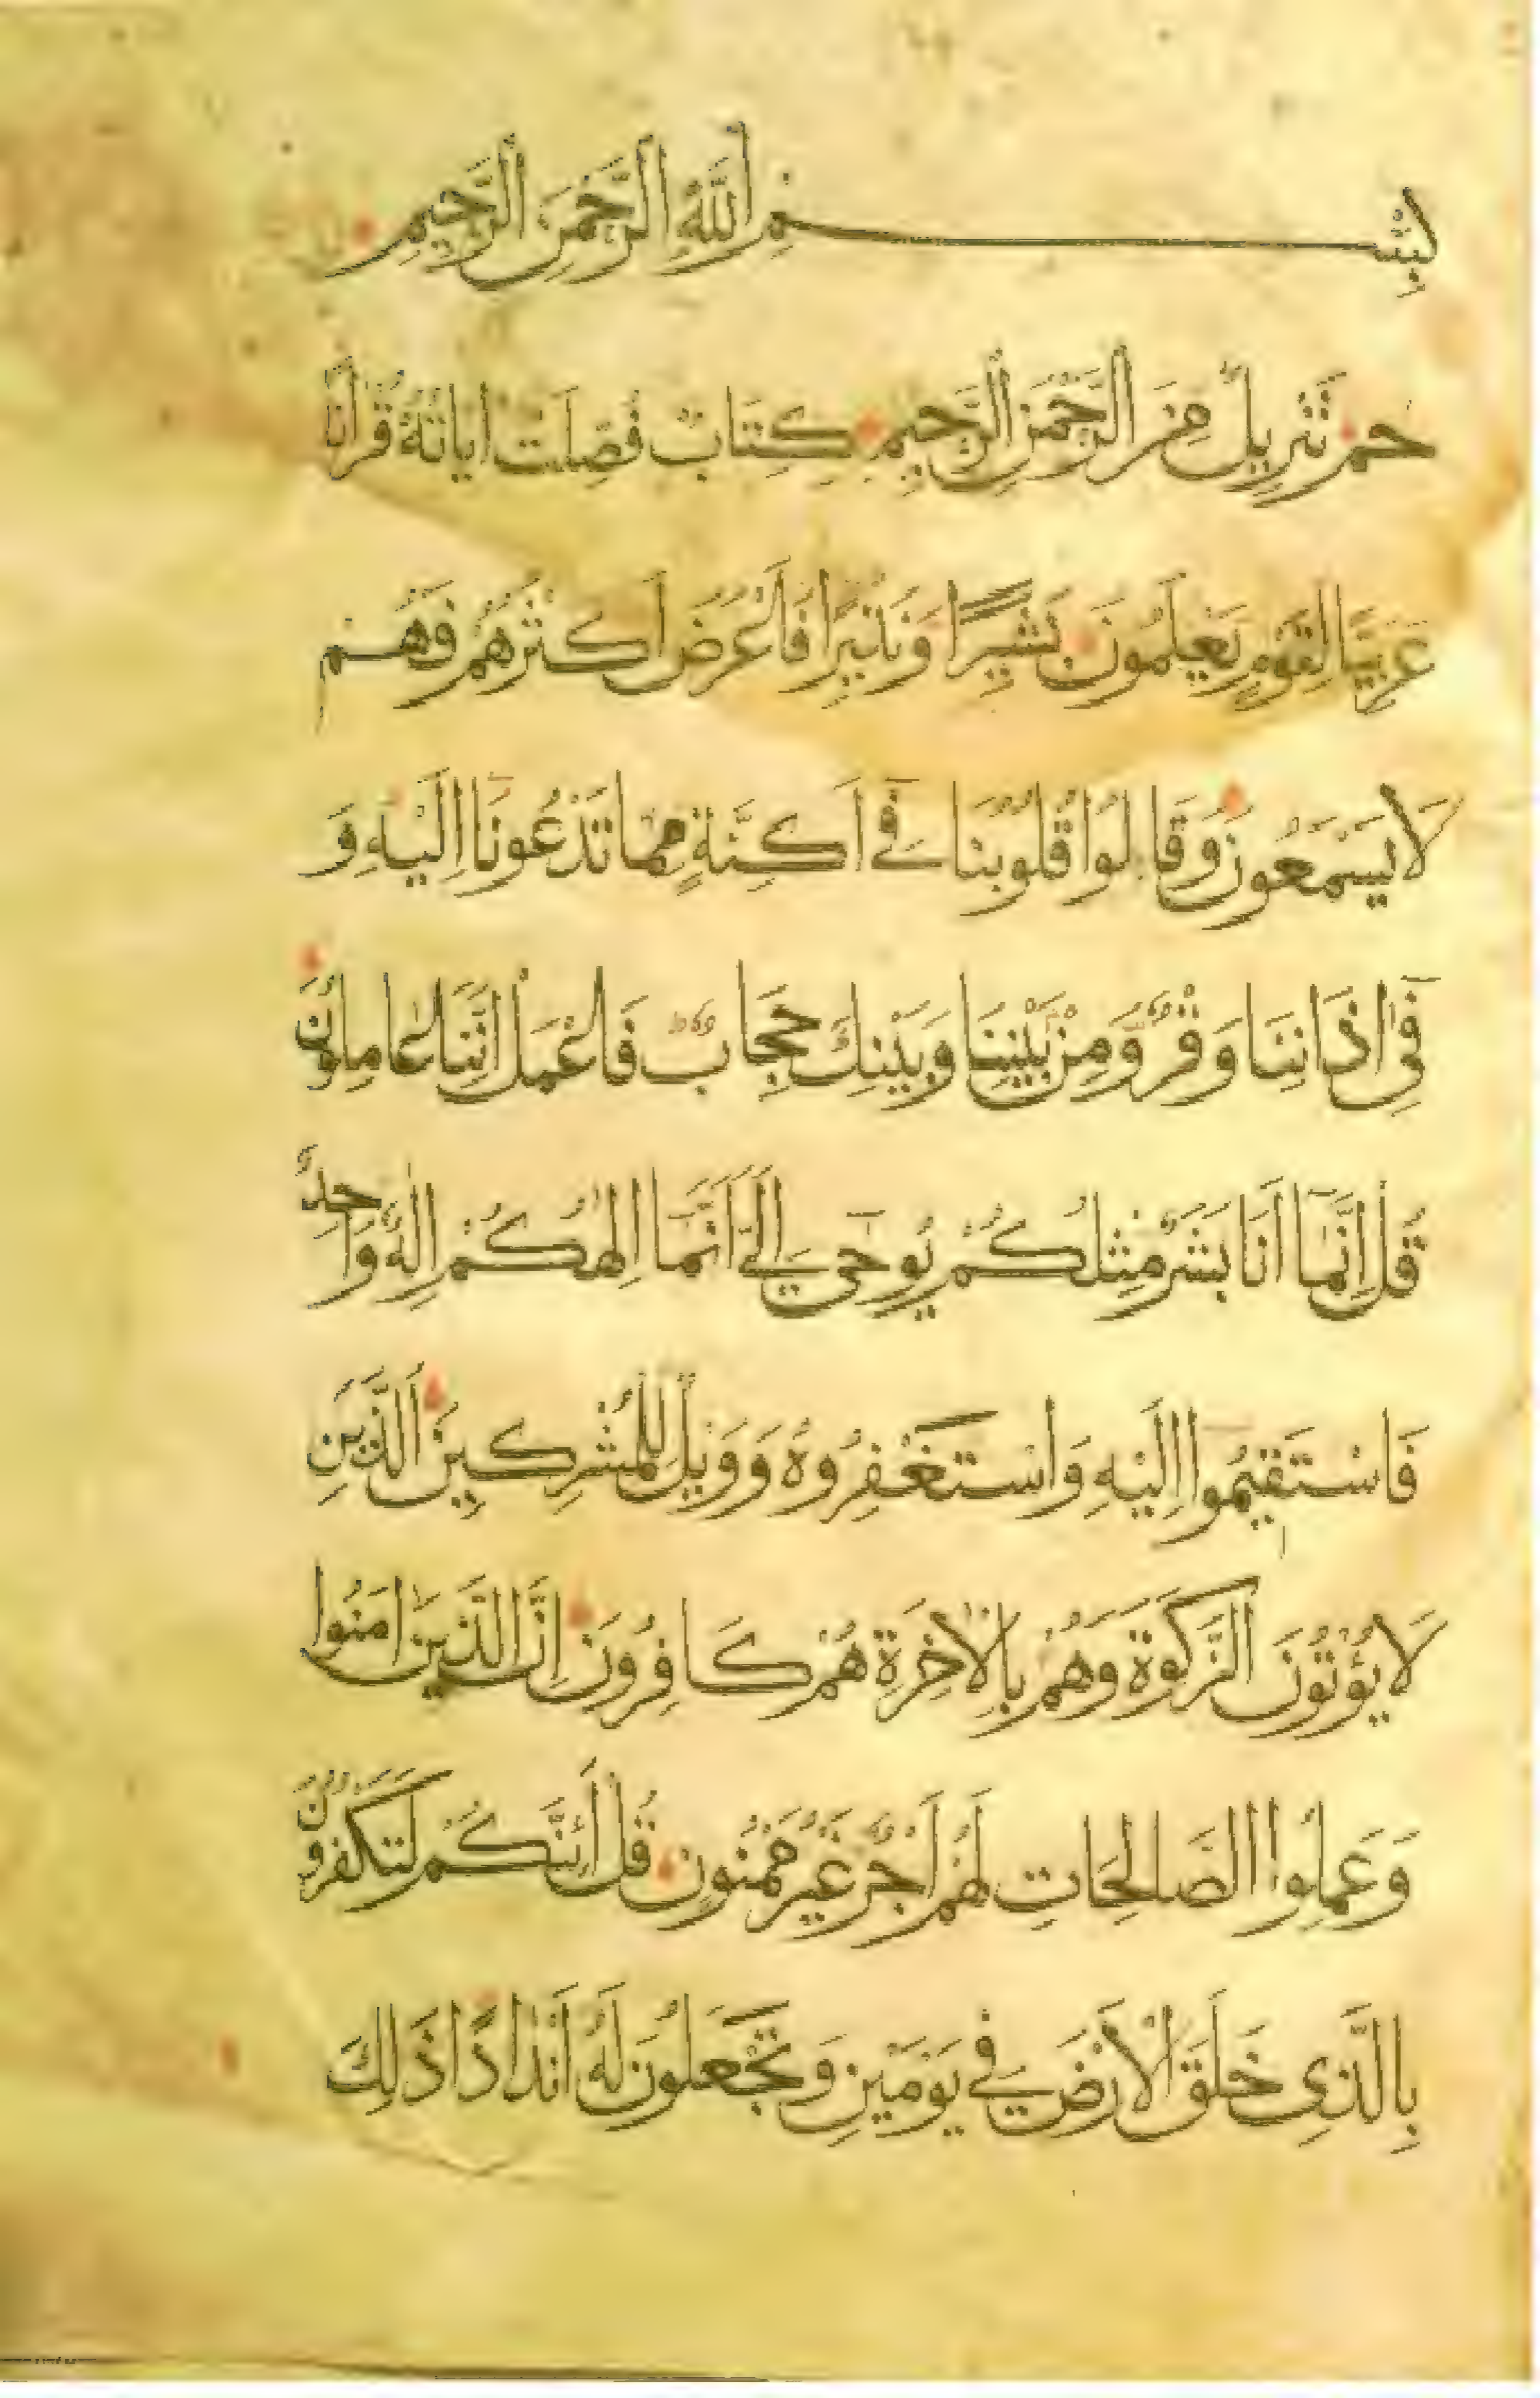 بِسْمِ اللَّهِ الرَّحْمَنِ الرَّحِيمِ
حم تَنْزِيلٌ مِنَ الرَّحْمَنِ الرَّحِيمِ كِتَابٌ فُصِّلَتْ ايَاتُهُ قُرْانًا
عَرَبِيًّا لِقَوْمٍ يَعْلَمُونَ بَشِيرًا وَنَذِيرًا فَاَعْرَضَ اَكْثَرُهُمْ فَهُمْ
لَا يَسْمَعُونَ وَقَالُوا قُلُوبُنَا فِي اَكِنَّةٍ مِمَّا تَدْعُونَا اِلَيْهِ وَ
فِي اذَانِنَا وَقْرٌ وَمِنْ بَيْنِنَا وَبَيْنِكَ حِجَابٌ فَاعْمَلْ اِنَّنَا عَامِلُونَ
قُلْ اِنَّمَا اَنَا بَشَرٌ مِثْلُكُمْ يُوحَى اِلَيَّ اَنَّمَا اِلَهُكُمْ اِلَهٌ وَاحِدٌ
فَاسْتَقِيمُوا اِلَيْهِ وَاسْتَغْفِرُوهُ وَوَيْلٌ لِلْمُشْرِكِينَ اَلَّذِينَ
لَا يُؤْتُونَ الزَّكَوةَ وَهُمْ بِالْاخِرَةِ هُمْ كَافِرُونَ اِنَّ الَّذِينَ امَنُوا
وَعَمِلُوا الصَّالِحَاتِ لَهُمْ اَجْرٌ غَيْرُ مَمْنُونٍ قُلْ اَئِنَّكُمْ لَتَكْفُرُونَ
بِالَّذِي خَلَقَ الْاَرْضَ فِي يَوْمَيْنِ وَتَجْعَلُونَ لَهُ اَنْدَادًا ذَلِكَ